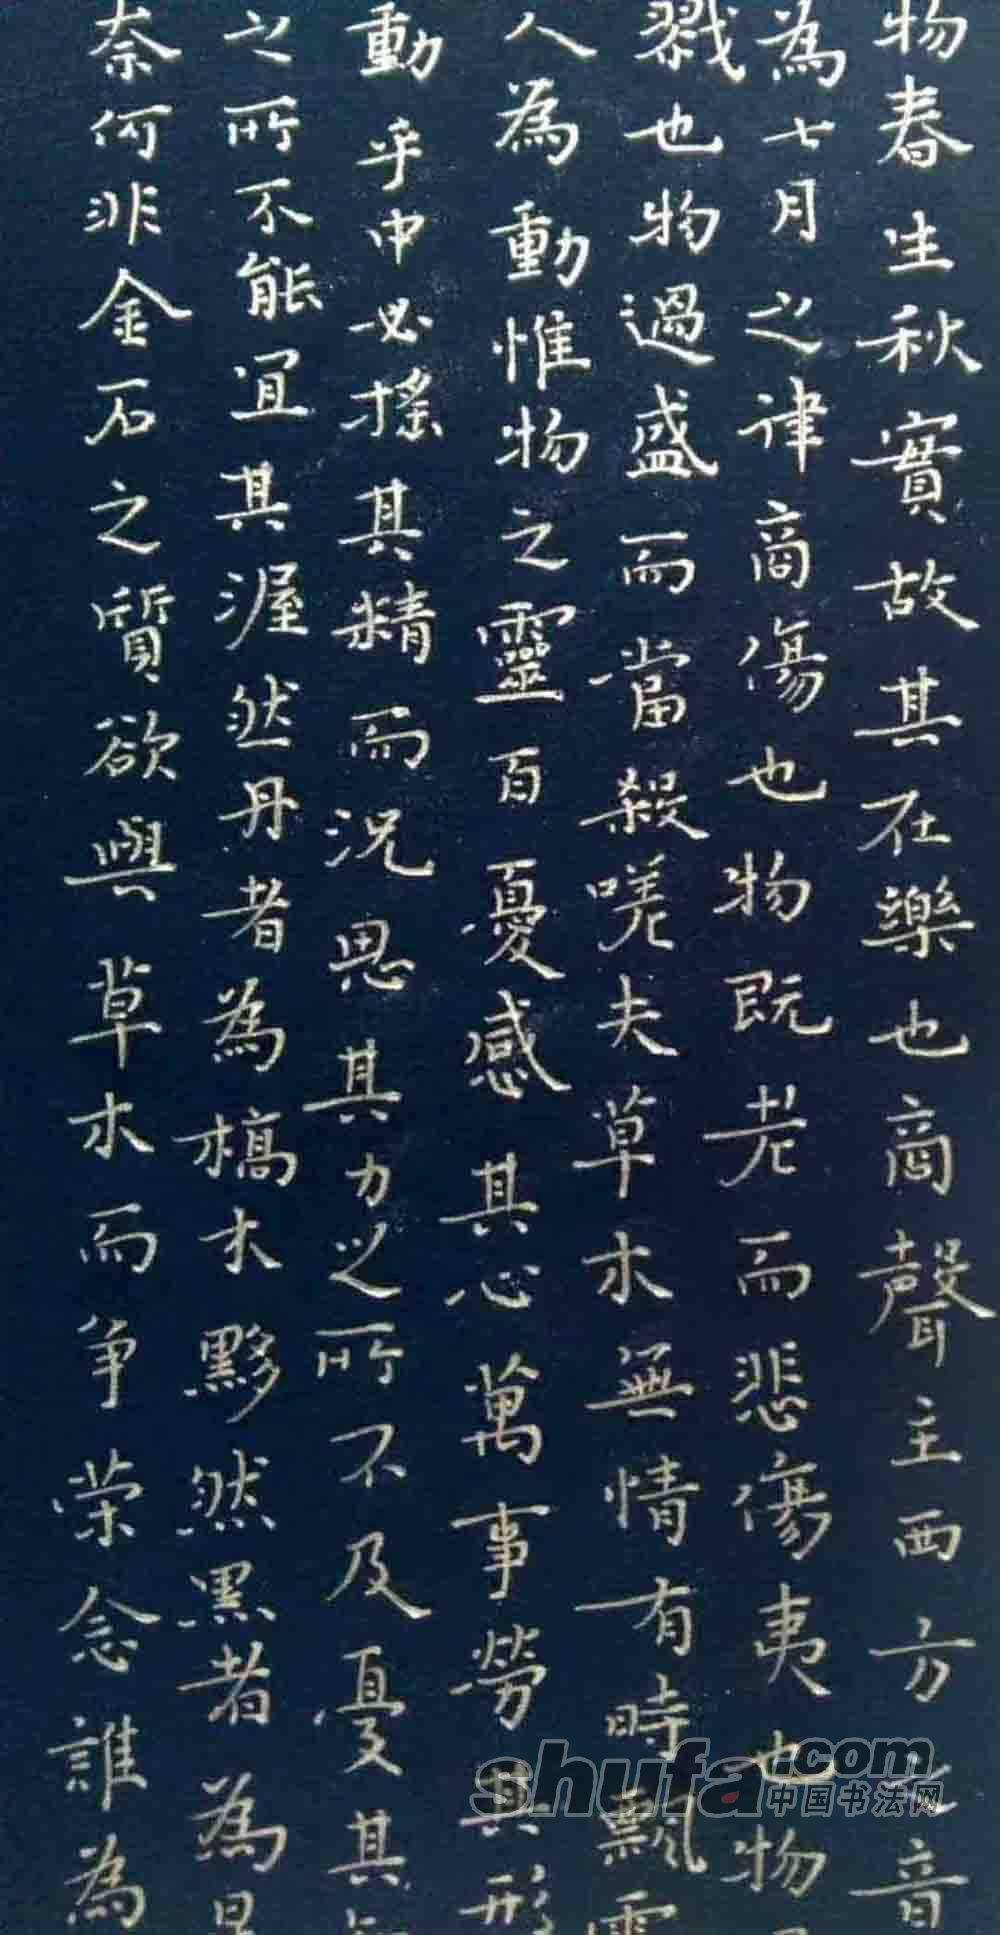 物春生秋實故其在樂也商聲主西方之音
為七月之律商傷也物既老而悲傷夷也物
戮也物過盛而當殺嗟夫草木無情有時飄
人為動惟物之靈百憂感其心萬事勞其形
動乎中必搖其精而況思其力之所不及憂其
之所不能宜其渥然丹者為槁木黟然黑者為星
奈何非金石之質欲與草木而爭榮念誰為
shufa.com
中国书法网